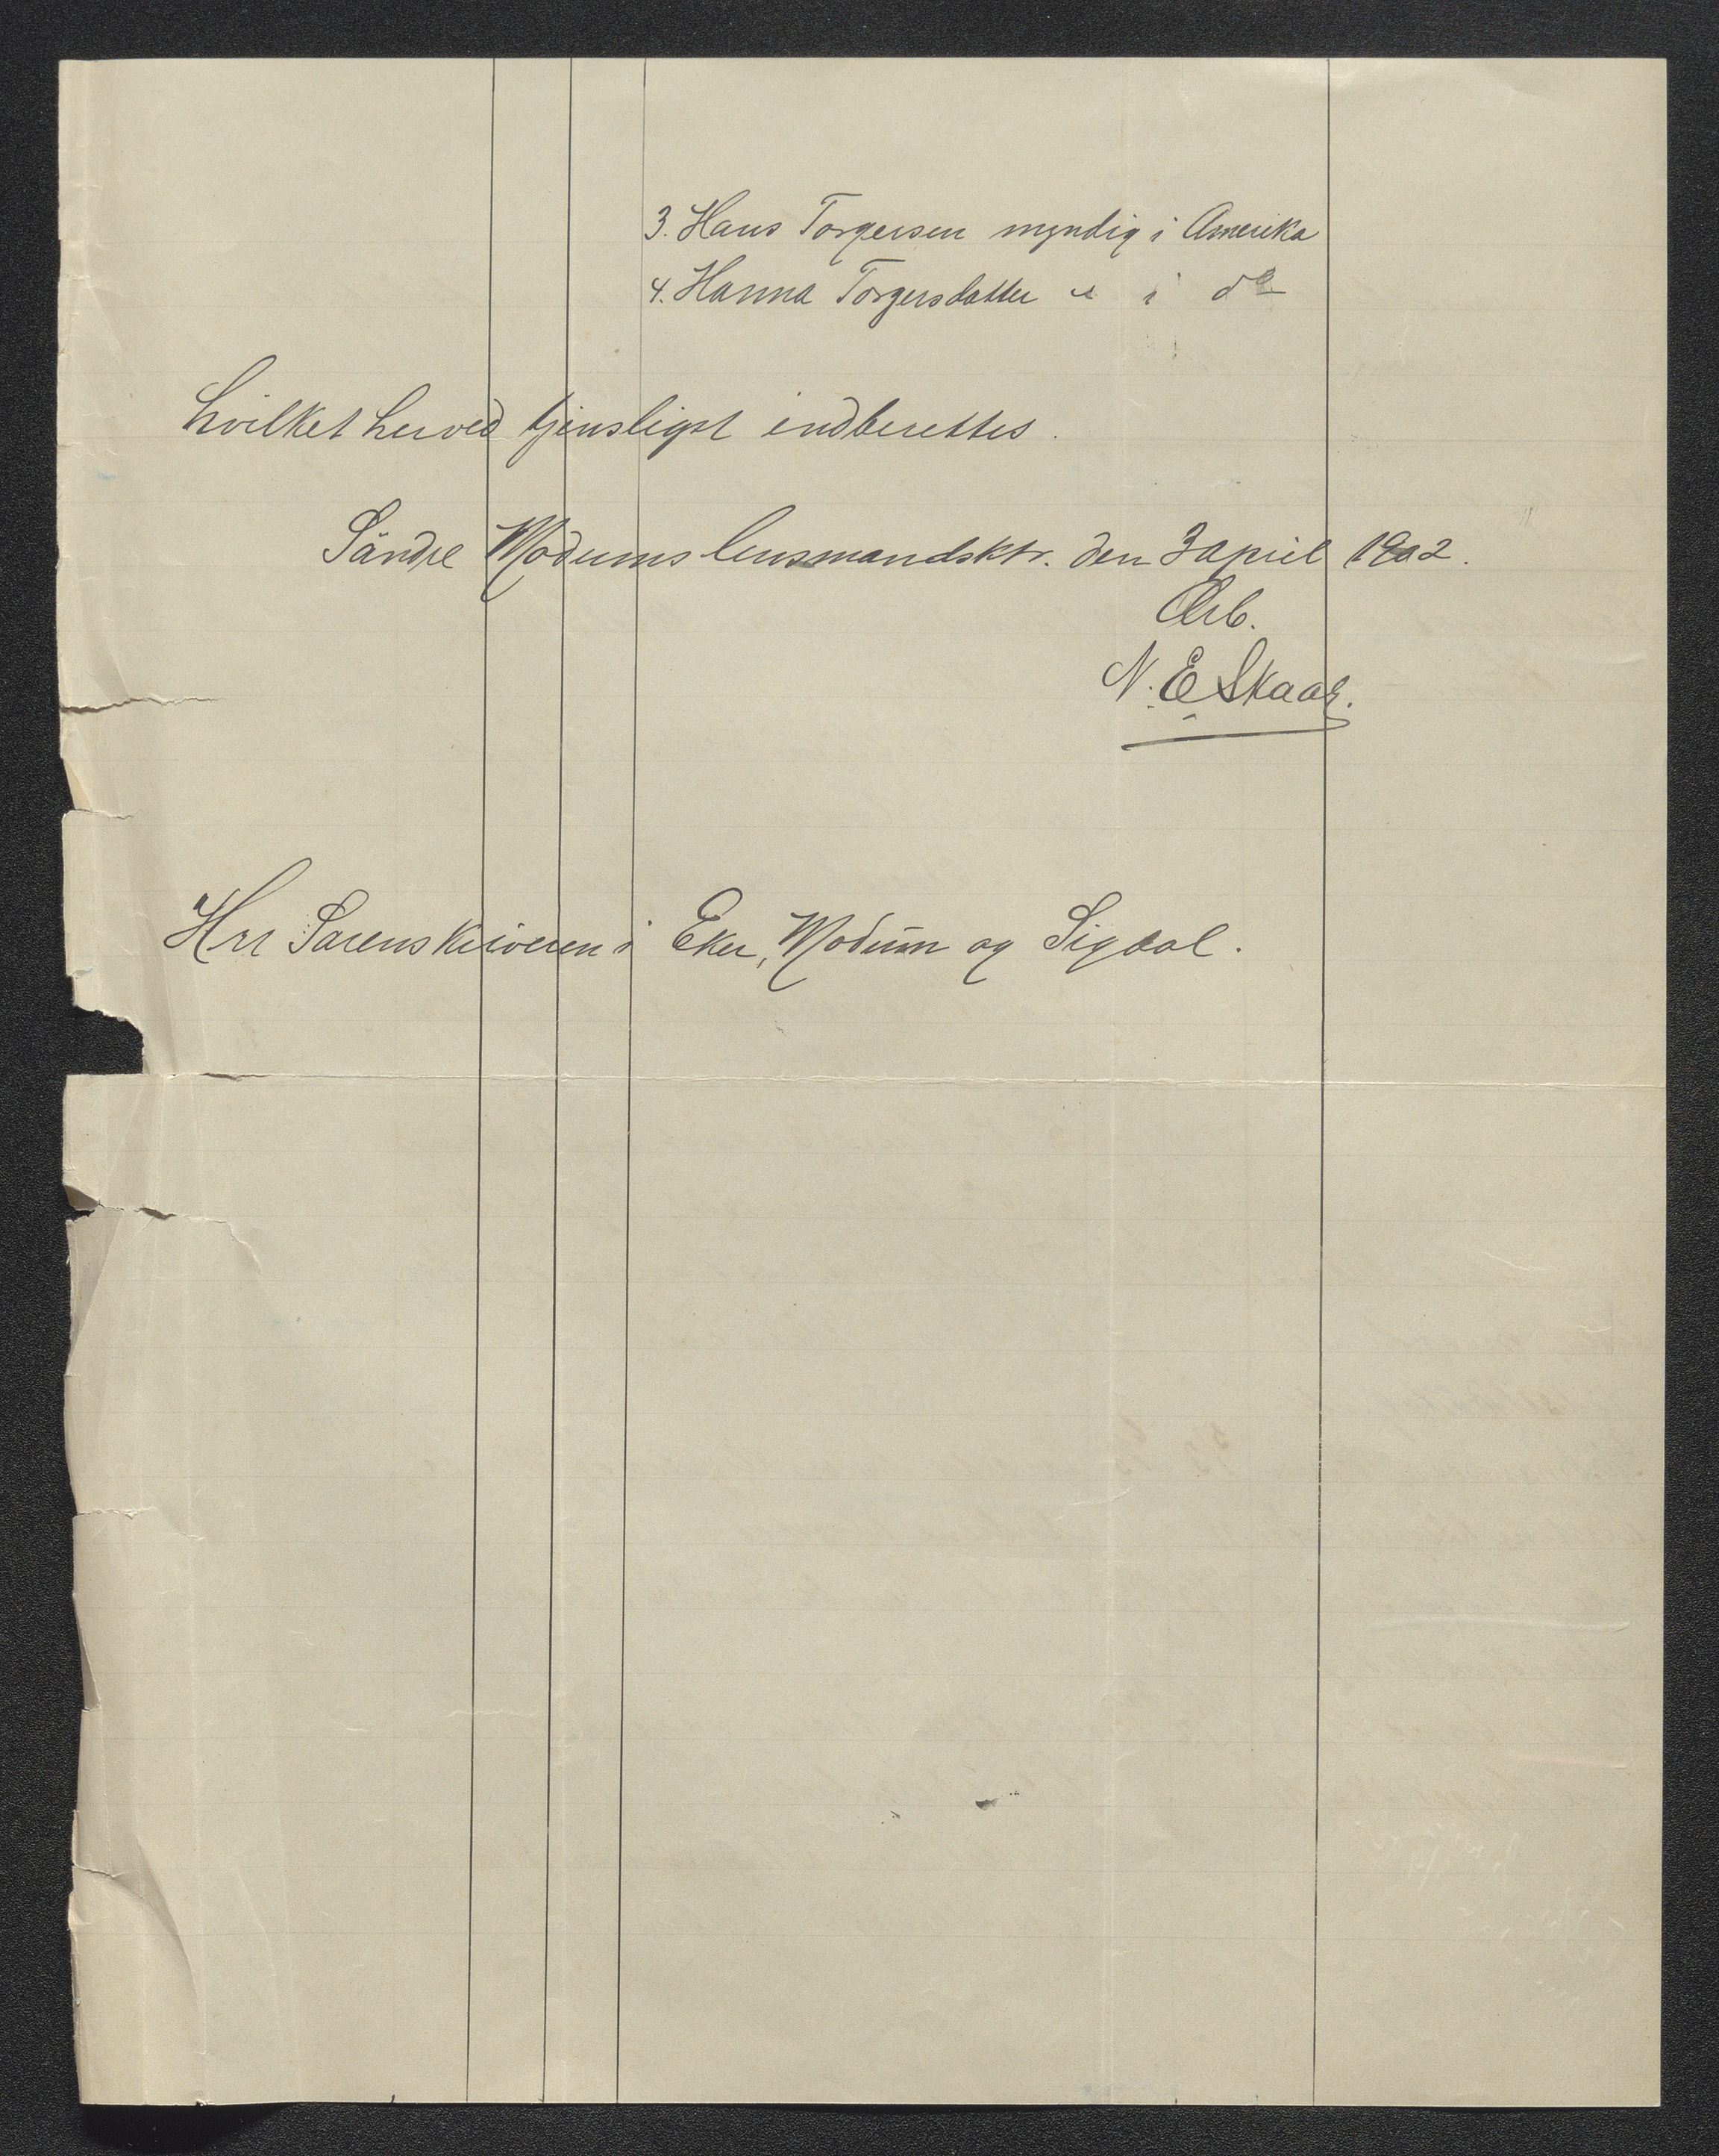 3. Hans Torgersen myndig i Amerika
4. Hanna Torgersdatter " i do
hvilket herved tjensligst indberettes.
Søndre Modums lensmandsktr. den 3 april 1902.
Ærb.
N. E Skaar.
Hrr Sorenskriveren i Eker, Modum og Sigdal.